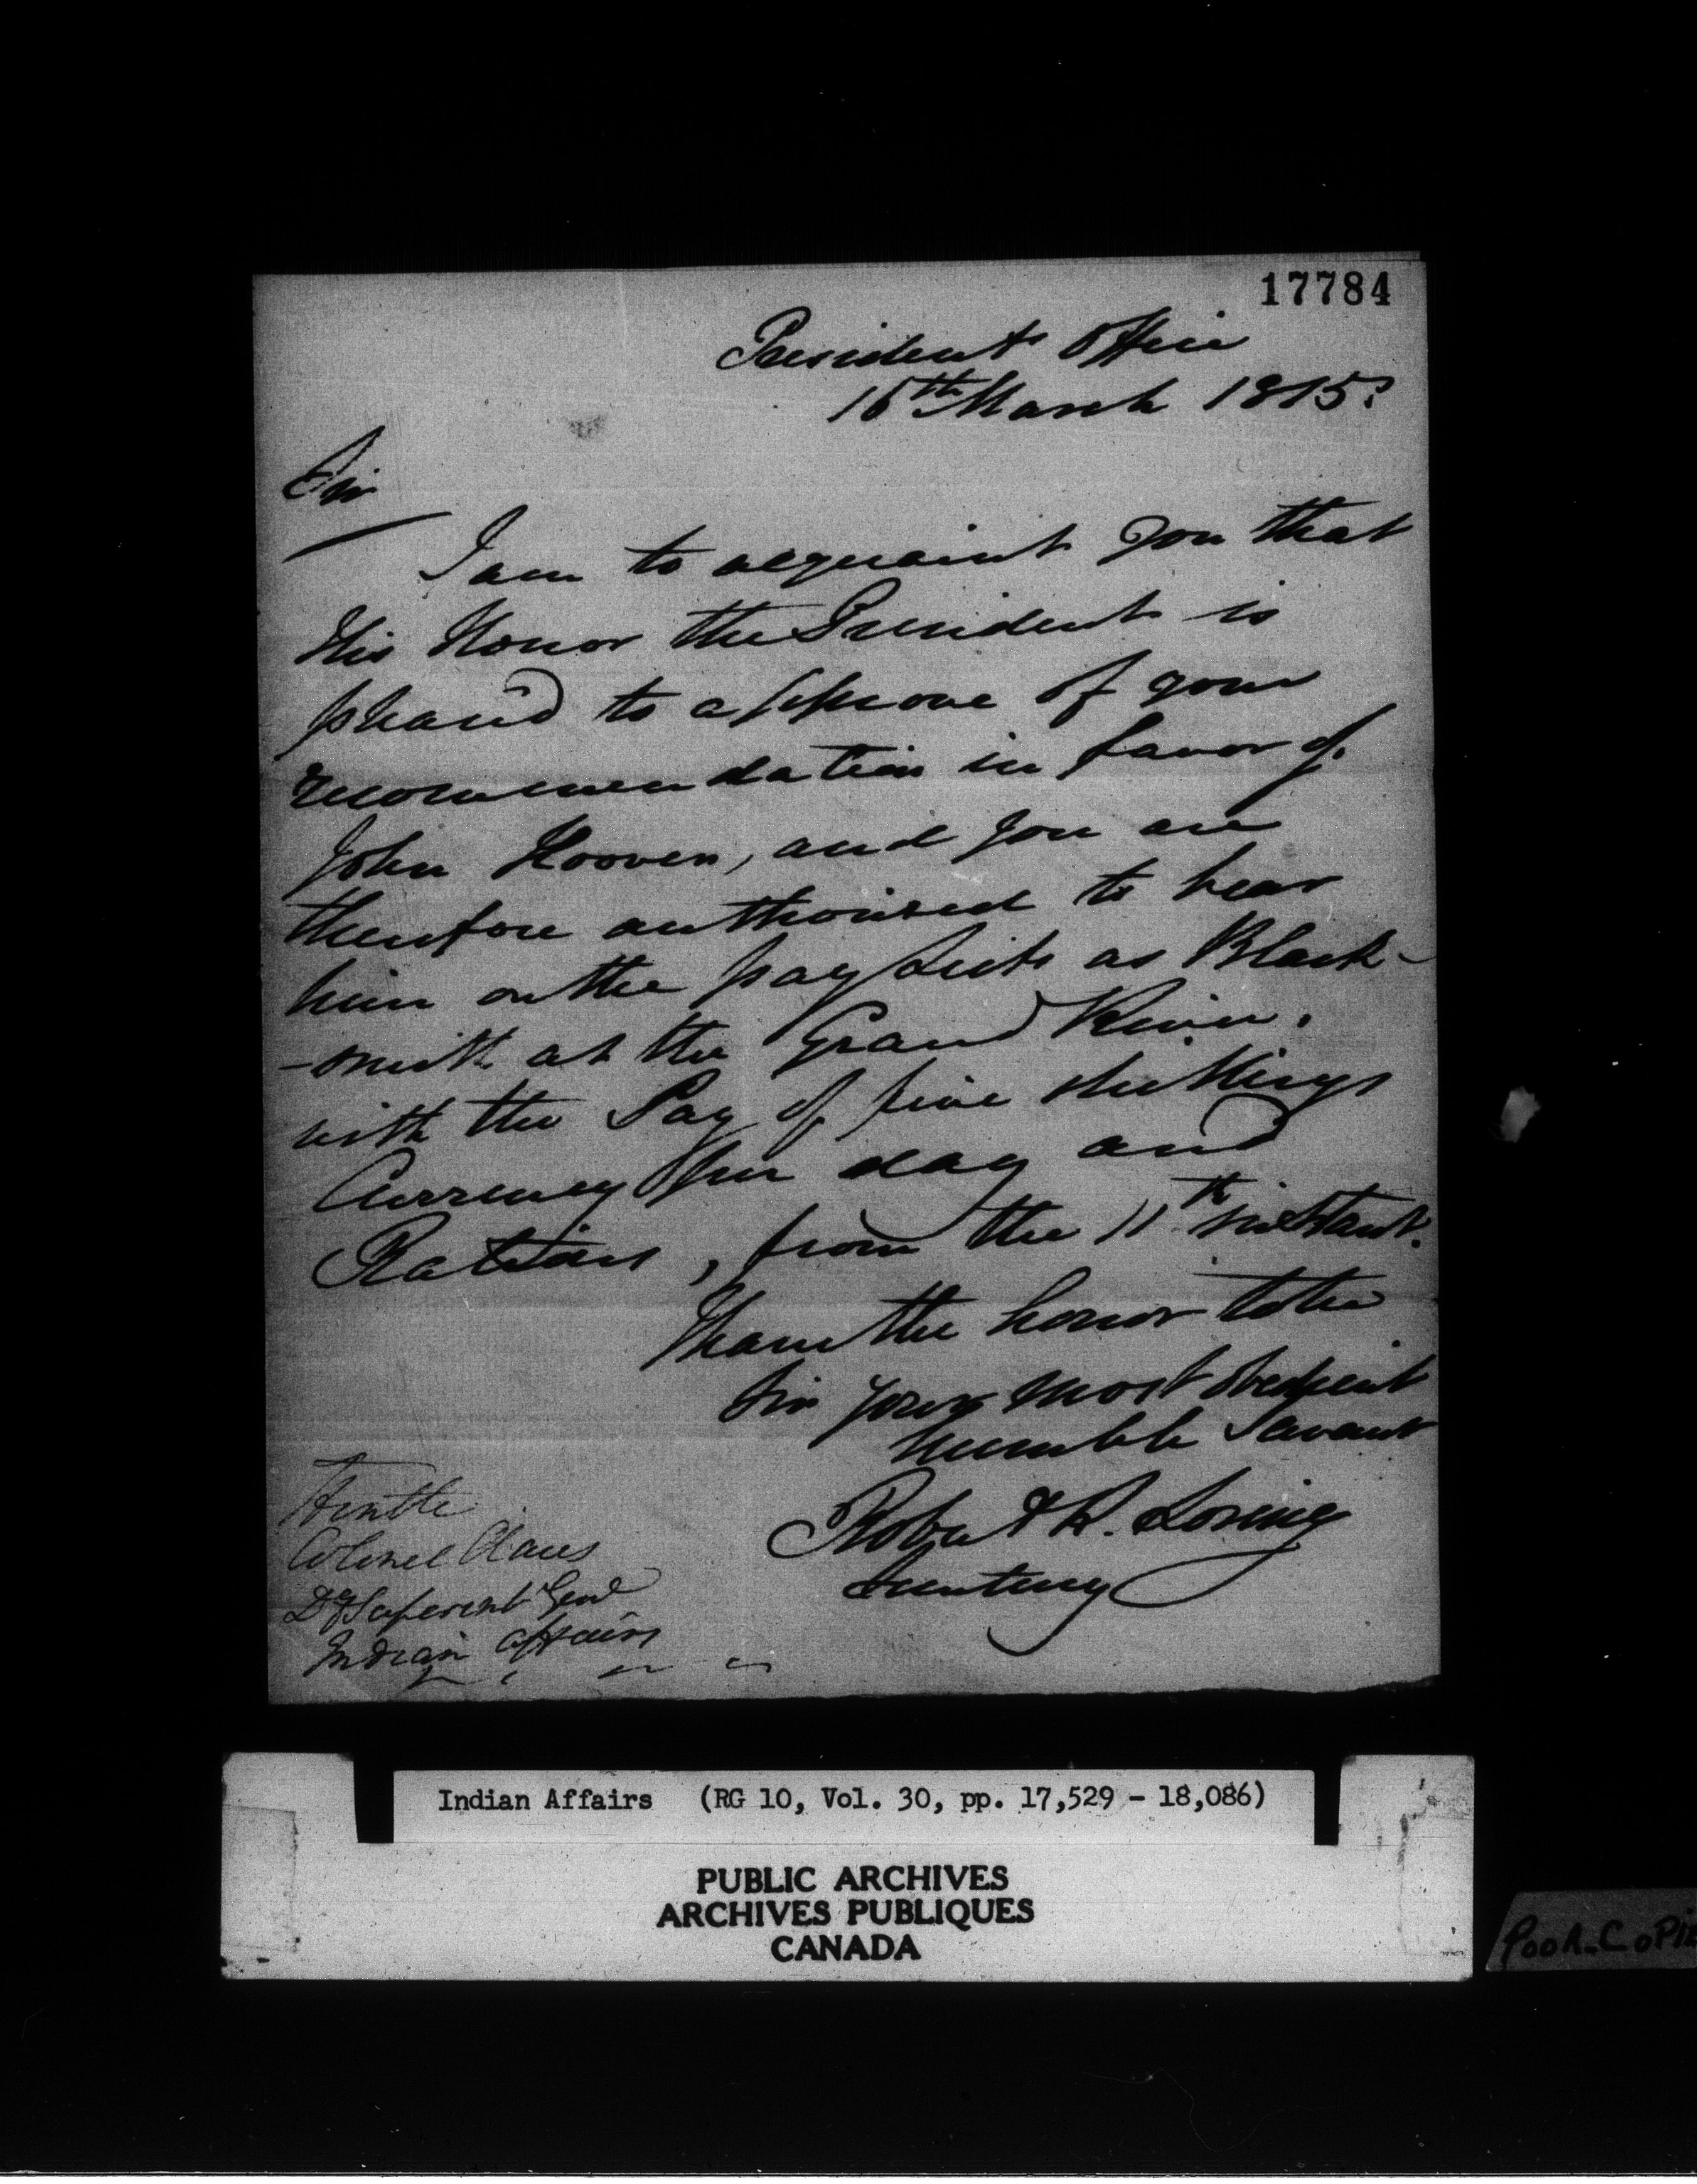 17784
Presidents Office
16th March 1815.
Sir
I am to acquaint you that
His Honor the President is
pleas'd to approve of your
recommendation in favor of
John Hoover, and you are
therefore authorised to bear
him on the pay Lists as Black-
-smith at the Grand River,
with the Pay of five shillings
Currency per day and
Rations, from the 11th instant.
I have the honor to be
Sir your most obedient
humble Servant
Robert R. Loring
Secretary
Honble
Colonel Claus
Dy Superint Genl
Indian Affairs
Indian Affairs (RG 10, Vol. 30, pp. 17,529 - 18,086)
PUBLIC ARCHIVES
ARCHIVES PUBLIQUES
CANADA
POOR COPIE